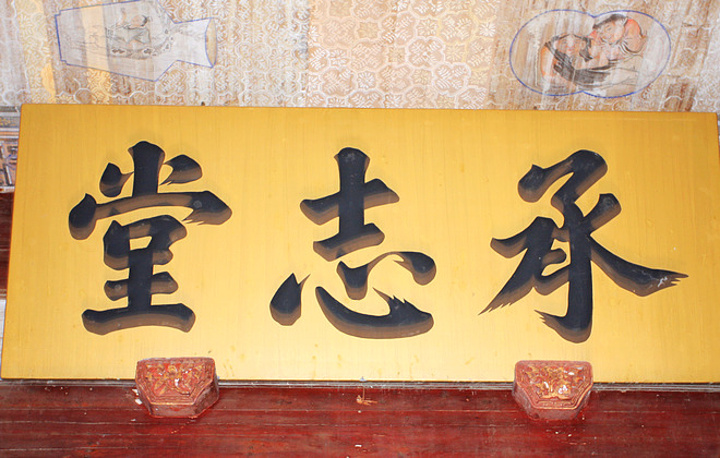 承志堂